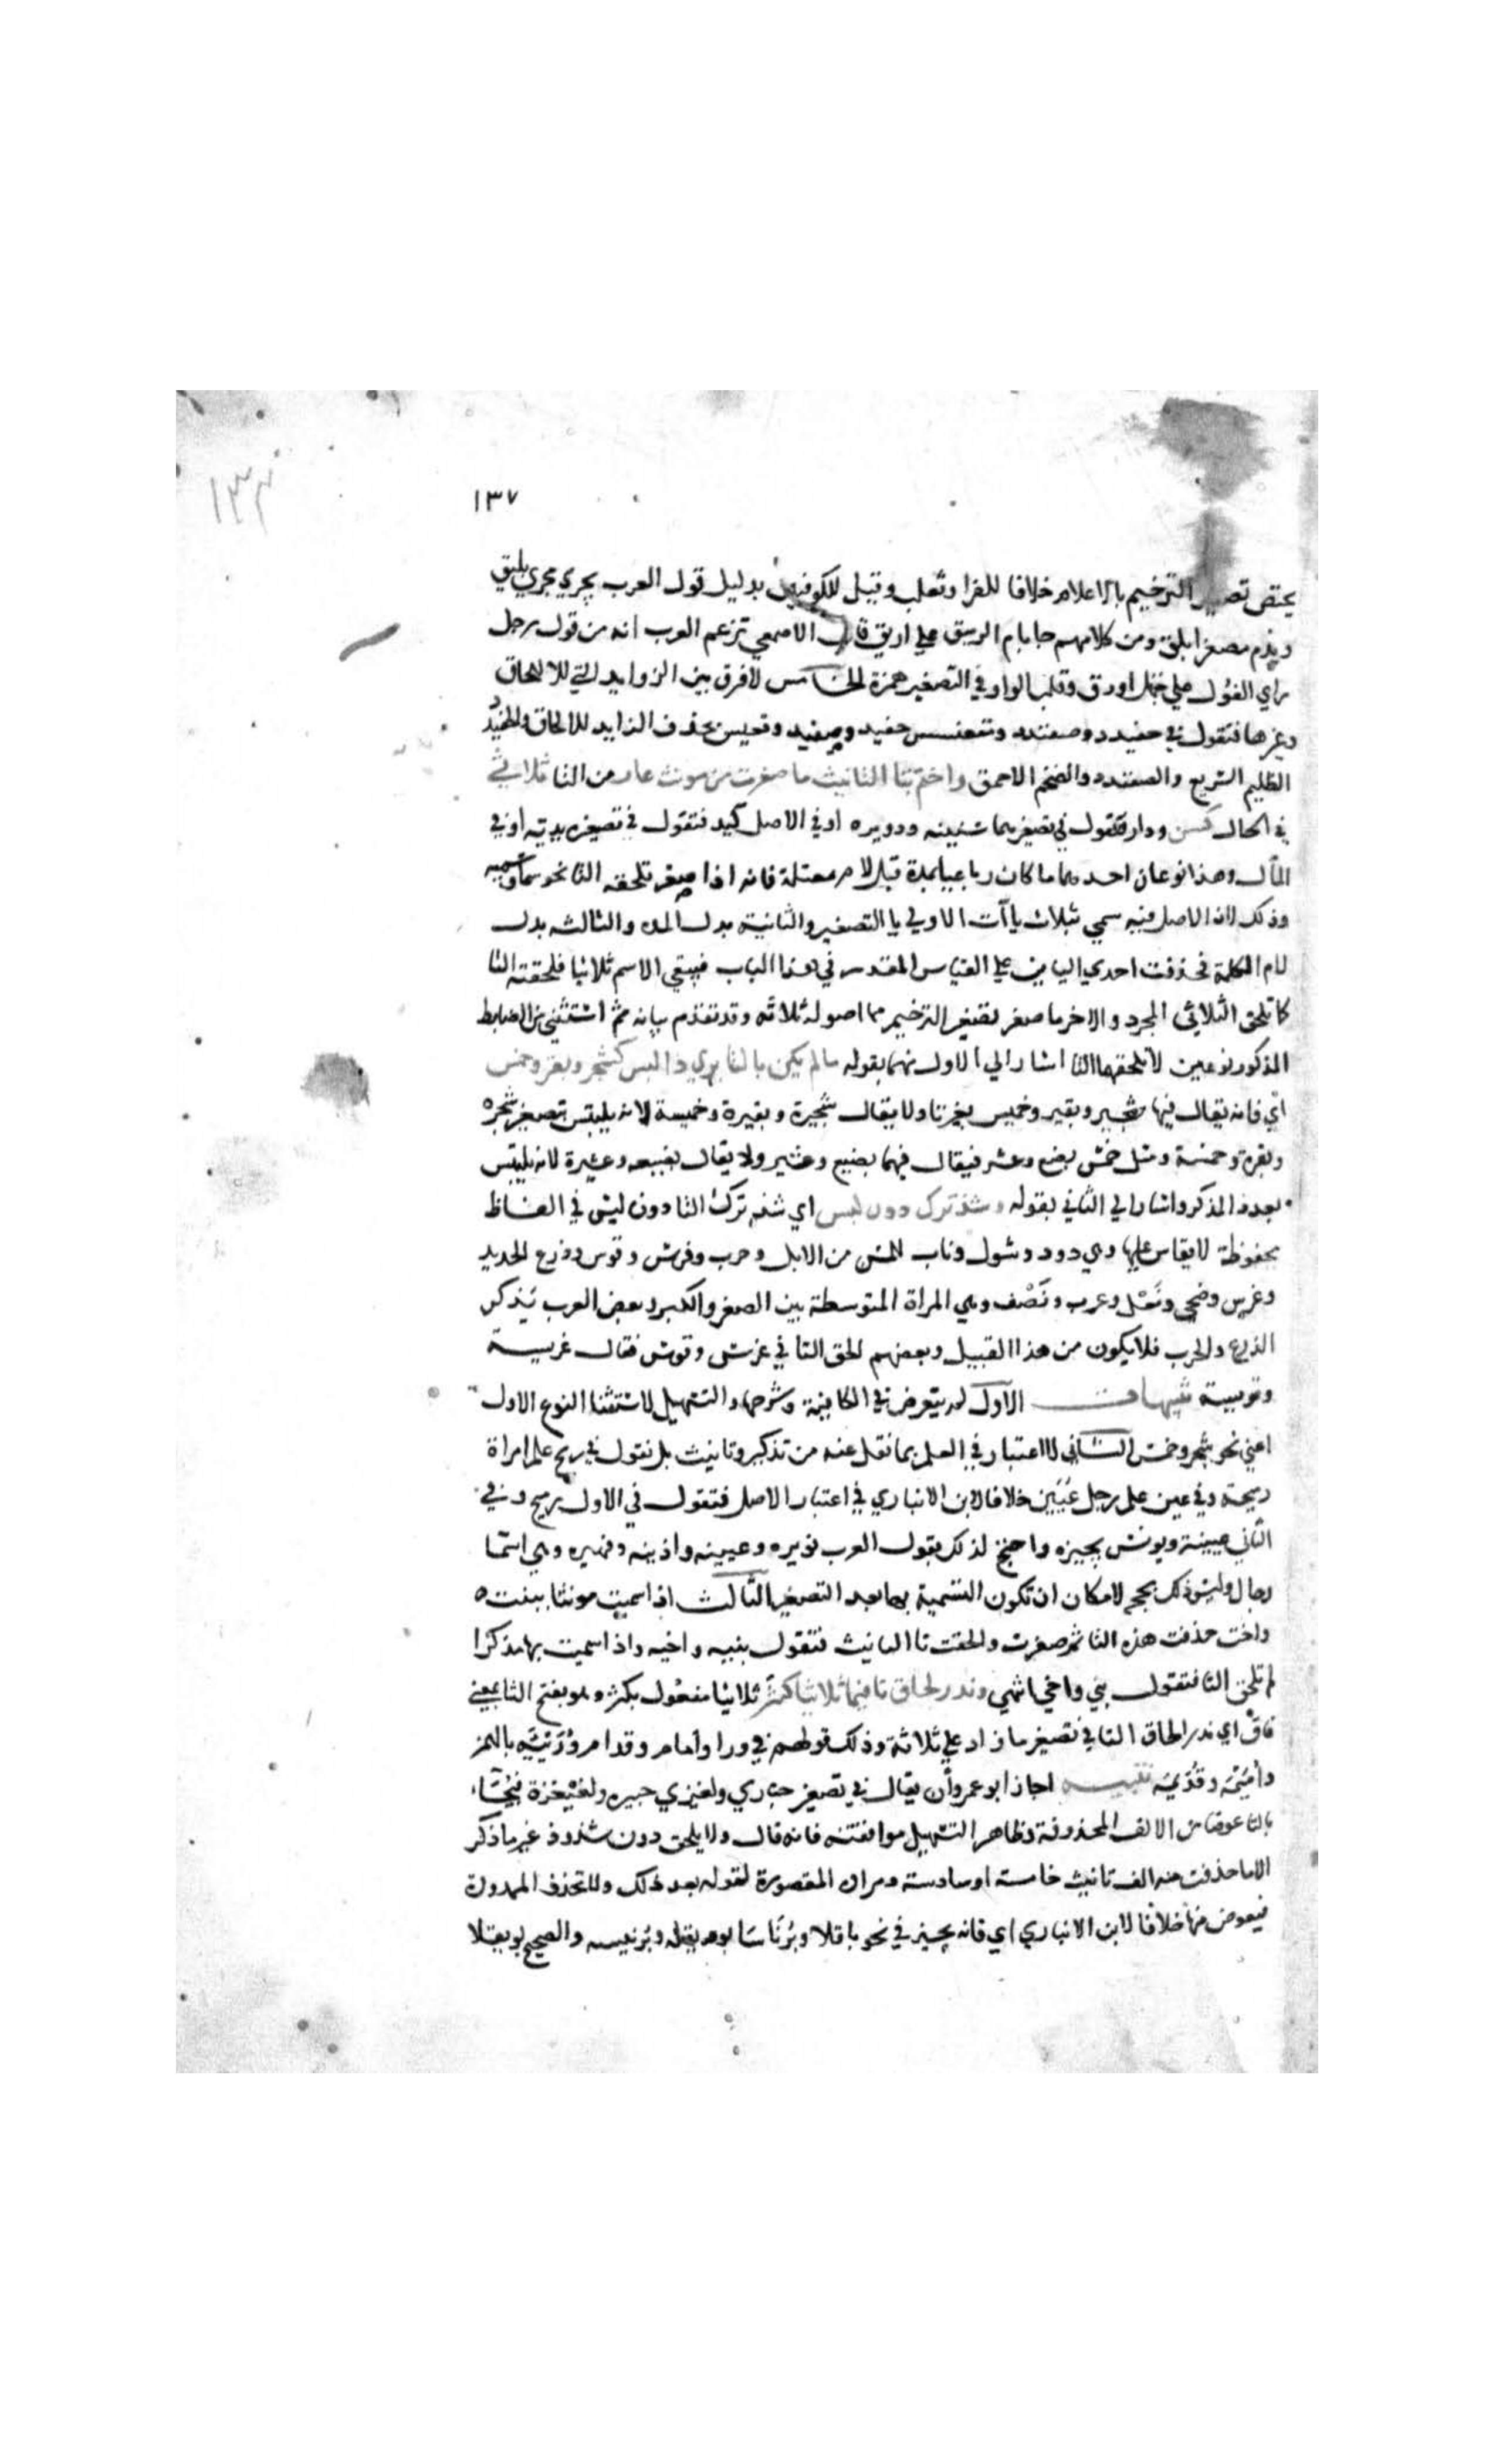 ١٣٢
١٣٧
يختص تصغير الترخيم بالاعلام خلافا للفرا وثعلب وقيل للكوفيين بدليل قول العرب يجري مجري بليق
ويذم مصغرا بلق ومن كلامهم جا بام الربيق علي اريق قال الاصمعي تزعم العرب انه من قول رجل
راي الغول علي جمل اورق وقلب الواو في التصغير همزة الخامس لا فرق بين الزوايد التي للالحاق
وغيرها فتقول في حفيدد وصفندد ومقعنسس حفيد وصفيد وقعيس بحذف الزايد للالحاق والحفيدد
الظليم السريع والصفندد والضخم الاحمق واختم بتا التانيث ما صغرت من مونث عار من التا ثلاثي
في الحال كسن ودار فتقول في تصغيرهما سنينه ودويره او في الاصل كيد فتقول في تصغيره يديه او في
المآل وهذا نوعان احدهما ما كان رباعيا بمدة قبل لام معتلة فانه اذا صغر تلحقه التا نحو سما وسميه
وذلك لان الاصل فيه سمي بثلاث ياآت الاولي يا التصغير والثانية بدل المده والثالثه بدل
لام الكلمة فحذفت احدي اليايين علي القياس المقدر في هذا الباب فيبقي الاسم ثلاثيا فلحقته التا
كما تلحق الثلاثي المجرد والاخر ما صغر تصغير الترخيم مما اصوله ثلاثه وقد تقدم بيانه ثم استثني من الضابط
المذكور نوعين لا تلحقهما التا اشار الي الاول منهما بقوله مالم يكن بالتا يري ذا لبس كشجر وبقر وخمس
اي فانه يقال فيها شجير وبقير وخميس بغير تا ولا يقال شجيرة وبقيرة وخميسة لانه يلتبس بتصغير شجره
وبقرة وخمسة ومثل خمس بضع وعشر فيقال فيهما بضيع وعشير ولا يقال بضيعه وعشيرة لانه يلتبس
بعدد المذكر واشار الي الثاني بقوله وشذ ترك دون لبس اي شذ ترك التا دون لبس في الفاظ
محفوظة لا يقاس عليها وهي ذود وشول وناب للمسن من الابل وحرب وفرس وقوس ودرع الحديد
وعرس وضحي ونعل وعرب ونصف وهي المراة المتوسطة بين الصغر والكبر وبعض العرب يذكر
الدرع والحرب فلا يكون من هذا القبيل وبعضهم الحق التا في عرس وقوس فقال عريسة
وقويسة تنبيهات الاول لم يتعرض في الكافية وشرحها والتسهيل لاستثنا النوع الاول
اعني نحو شجر وخمس الثاني لا اعتبار في العلم بما نقل عنه من تذكير وتانيث بل نقول في رمح علم امراة
رميحة وفي عين علم رجل عيين خلافا لابن الانباري في اعتبار الاصل فتقول في الاول رميح وفي
الثاني عيينة ويونس يجيزه واحتج لذلك بقول العرب نويره وعيينه واذينه وفهيره وهي اسما
رجال وليس ذلك بحجة لامكان ان تكون التسمية بها بعد التصغير الثالث اذا سميت مونثا ببنت
واخت حذفت هذه التا ثم صغرت والحقت تا التانيث فتقول بنيه واخيه واذا سميت بهما مذكرا
لم تلحق التا فتقول بني واخي انتهي وندر لحاق تا فيما ثلاثيا كثر ثلاثيا مفعول بكثر وهو بفتح الثا بمعني
فاق اي ندر الحاق التا في تصغير ما زاد علي ثلاثة وذلك قولهم في ورا وامام وقدام وريئة بالهمز
واميمة وقديمة تنبيه اجاز ابو عمرو ان يقال في تصغير حباري ولغيزي حبيره ولغيغزة فيجاء
بالتا عوضا من الالف المحذوفة وظاهر التسهيل موافقته فانه قال ولا يلحق دون شذوذ غير ما ذكر
الا ما حذفت منه الف تانيث خامسة او سادسة ومراده المقصورة لقوله بعد ذلك ولا تحذف الممدودة
فيعوض منها خلافا لابن الانباري اي فانه يجيز في نحو باقلا وبرناسا بويقلة وبرنيسه والصحيح بويقلا